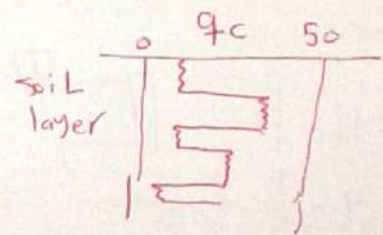 0 qc 50
soil
layer